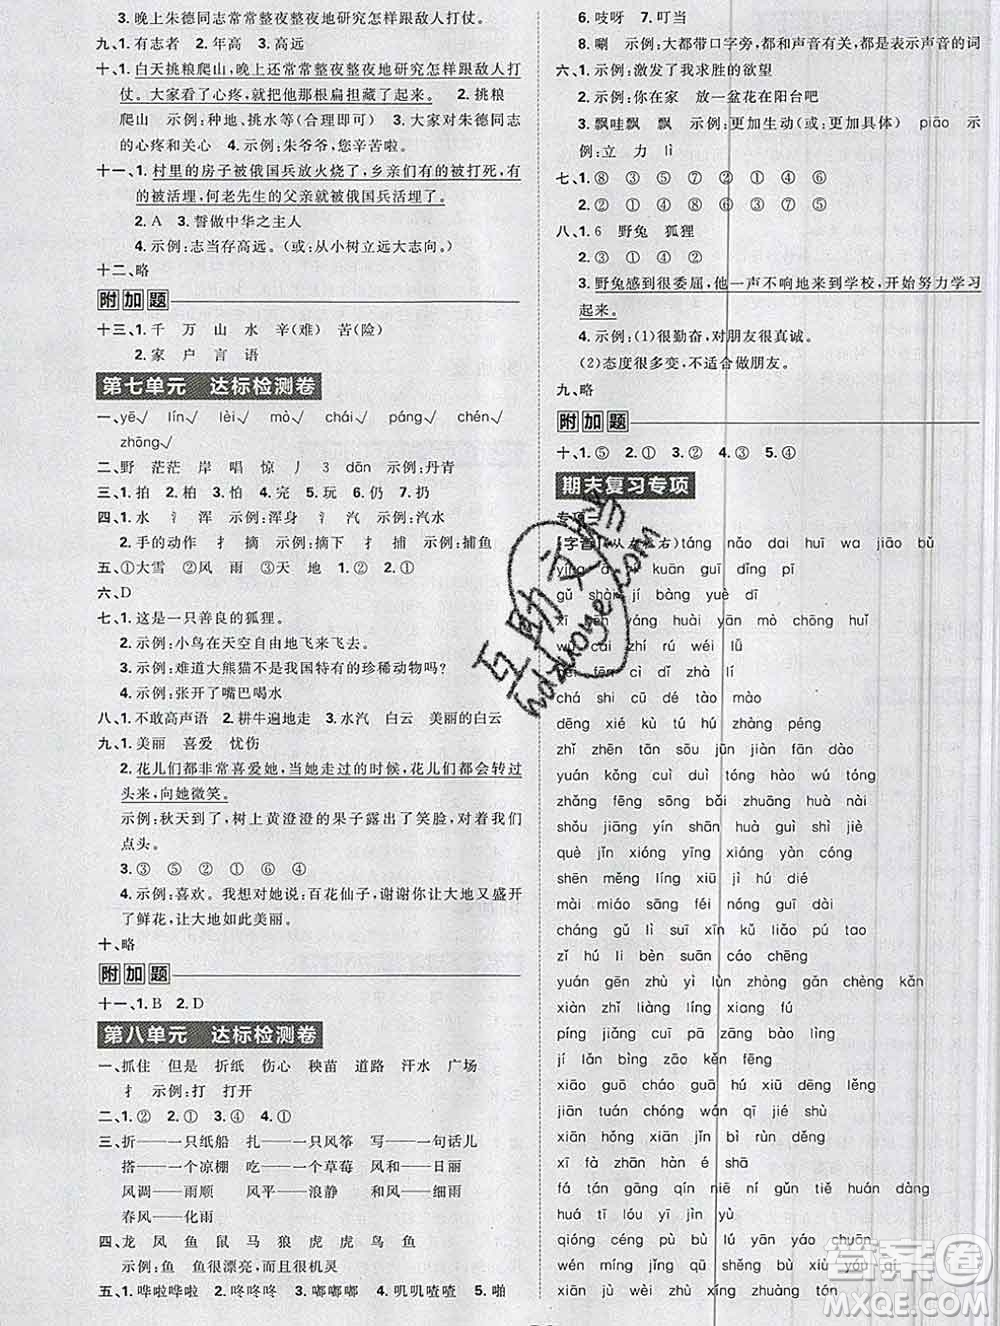 3.晚上朱德同志常常整夜整夜地研究怎样跟敌人打仗。
九、1.有志者 2.年高 3.高远
十、1.白天挑粮爬山,晚上还常常整夜整夜地研究怎样跟敌人打
仗。大家看了心疼,就把他那根扁担藏了起来。 2.挑粮
爬山 示例:种地、挑水等(合理即可) 3.大家对朱德同志
的心疼和关心 4.示例:朱爷爷,您辛苦啦。
十一、1.村里的房子被俄国兵放火烧了,乡亲们有的被打死,有的
被活埋,何老先生的父亲就被俄国兵活埋了。
2.A 3.誓做中华之主人
4.示例:志当存高远。(或:从小树立远大志向。)
十二、略
附加题
十三、1.千 万 山 水 辛(难) 苦(险)
2.家 户 言 语
第七单元 达标检测卷
一、yě√ lín√ lèi√ mò√ chái√ páng√ chén√
zhōng√
二、野 茫茫 岸 唱 惊 丿 3 dān 示例:丹青
三、1.拍 2.拾 3.怕 4.完 5.玩 6.仍 7.扔
四、1.水 氵 浑 示例:浑身 氵 汽 示例:汽水
2.手的动作 扌 摘 示例:摘下 扌 捕 示例:捕鱼
五、①大雪 ②风 雨 ③天 地 1.② 2.① 3.③
六、D
七、1.这是一只善良的狐狸。
2.示例:小鸟在天空自由地飞来飞去。
3.示例:难道大熊猫不是我国特有的珍稀动物吗?
4.示例:张开了嘴巴喝水
八、1.不敢高声语 2.耕牛遍地走 3.水汽 白云 美丽的白云
九、1.美丽 喜爱 忧伤
2.花儿们都非常喜爱她,当她走过的时候,花儿们都会转过
头来,向她微笑。
示例:秋天到了,树上黄澄澄的果子露出了笑脸,对我们
点头。
3.③ ⑤ ② ④ ① ⑥
4.示例:喜欢。我想对她说:百花仙子,谢谢你让大地又盛开
了鲜花,让大地如此美丽。
十、略
附加题
十一、1.B 2.D
第八单元 达标检测卷
一、抓住 但是 折纸 伤心 秧苗 道路 汗水 广场
扌 示例:打 打开
二、1.② 2.① 3.④ 4.③ ①
三、折——一只纸船 扎——一只风筝 写——一句话儿
搭——一个凉棚 画——一个草莓 风和——日丽
风调——雨顺 风平——浪静 风和——日丽
春风——化雨
四、龙 凤 鱼 鼠 马 狼 虎 虎 鸟 鱼
示例:鱼 鱼很漂亮,而且很机灵
五、1.哗啦哗啦 2.咚咚咚 3.嘟嘟嘟 4.叽叽喳喳 5.啪
6.吱呀 7.叮当
8.唰 示例:大都带口字旁,都和声音有关,是表示声音的词
六、1.示例:激发了我求胜的欲望
2.示例:你在家 放一盆花在阳台吧
3.飘哇飘 飘 示例:更加生动(或:更加具体) piāo 示
例:立 力 lì
七、1.⑧ ③ ⑤ ⑦ ② ① ④ ⑥
2.② ① ④ ③ ⑧ ⑥ ⑦ ⑤
八、1.6 野兔 狐狸
2.③ ④ ① ②
3.野兔感到很委屈,他一声不响地来到学校,开始努力学习
起来。
4.示例:(1)很勤奋,对朋友很真诚。
(2)态度很多变,不适合做朋友。
九、略
附加题
十、1.⑤ 2.② ① 3.② ① 4.② ①
期末复习专项
专项一
字音(从左至右)táng nǎo dai huī wa jiāo bǔ
kuān guī dīng pí
shàn jí bàng yuè dī
yáng huài yān mò chōng huǐ
cái rú wéi lǜ
fēn cì dí jú jù
chá shi cū dé tào mào
dēng xié kù tú hú zhàng péng
zhǐ zhēn tān sōu jūn jiàn fān dào
yuán kǒng cuì dú tóng hào tóng
zhǎng fēng sōng bǎi zhuāng huà
shǒu jiāng yín shān huà guò shí jiē
què jīn xióng yīng xīng huā
shēn měng líng xiū jǐ hú dié
mài miáo sāng féi nóng gēng
cháng gǔ lì suī xī qiāo pú tao
zǐ hú li bēn nán cǎo cháng
yuán gēn zhù yì lùn zhòng gǎn chéng kè
xiàn zhǐ liàng líng xiang fú
píng jiǎng cuī pā zāng bìng
jí lǎn bìng zāo kǎn fēng
xiāo guō cháo guā xiū dēng lěng
jiān tuán chóu chāo jiē shù
xiān hǒng xiān bì rùn shuǐ
xī fà zhān hā é shā
fá tán gān qīn niè ní tiě huán dàng
huá tī lóu yī jìn yù
qióng céng yí yáo cháo chuān
wén zǎo zhān bì xiù yóu qí
xián jù wèi zhù xíng zhuàng zhí yuán